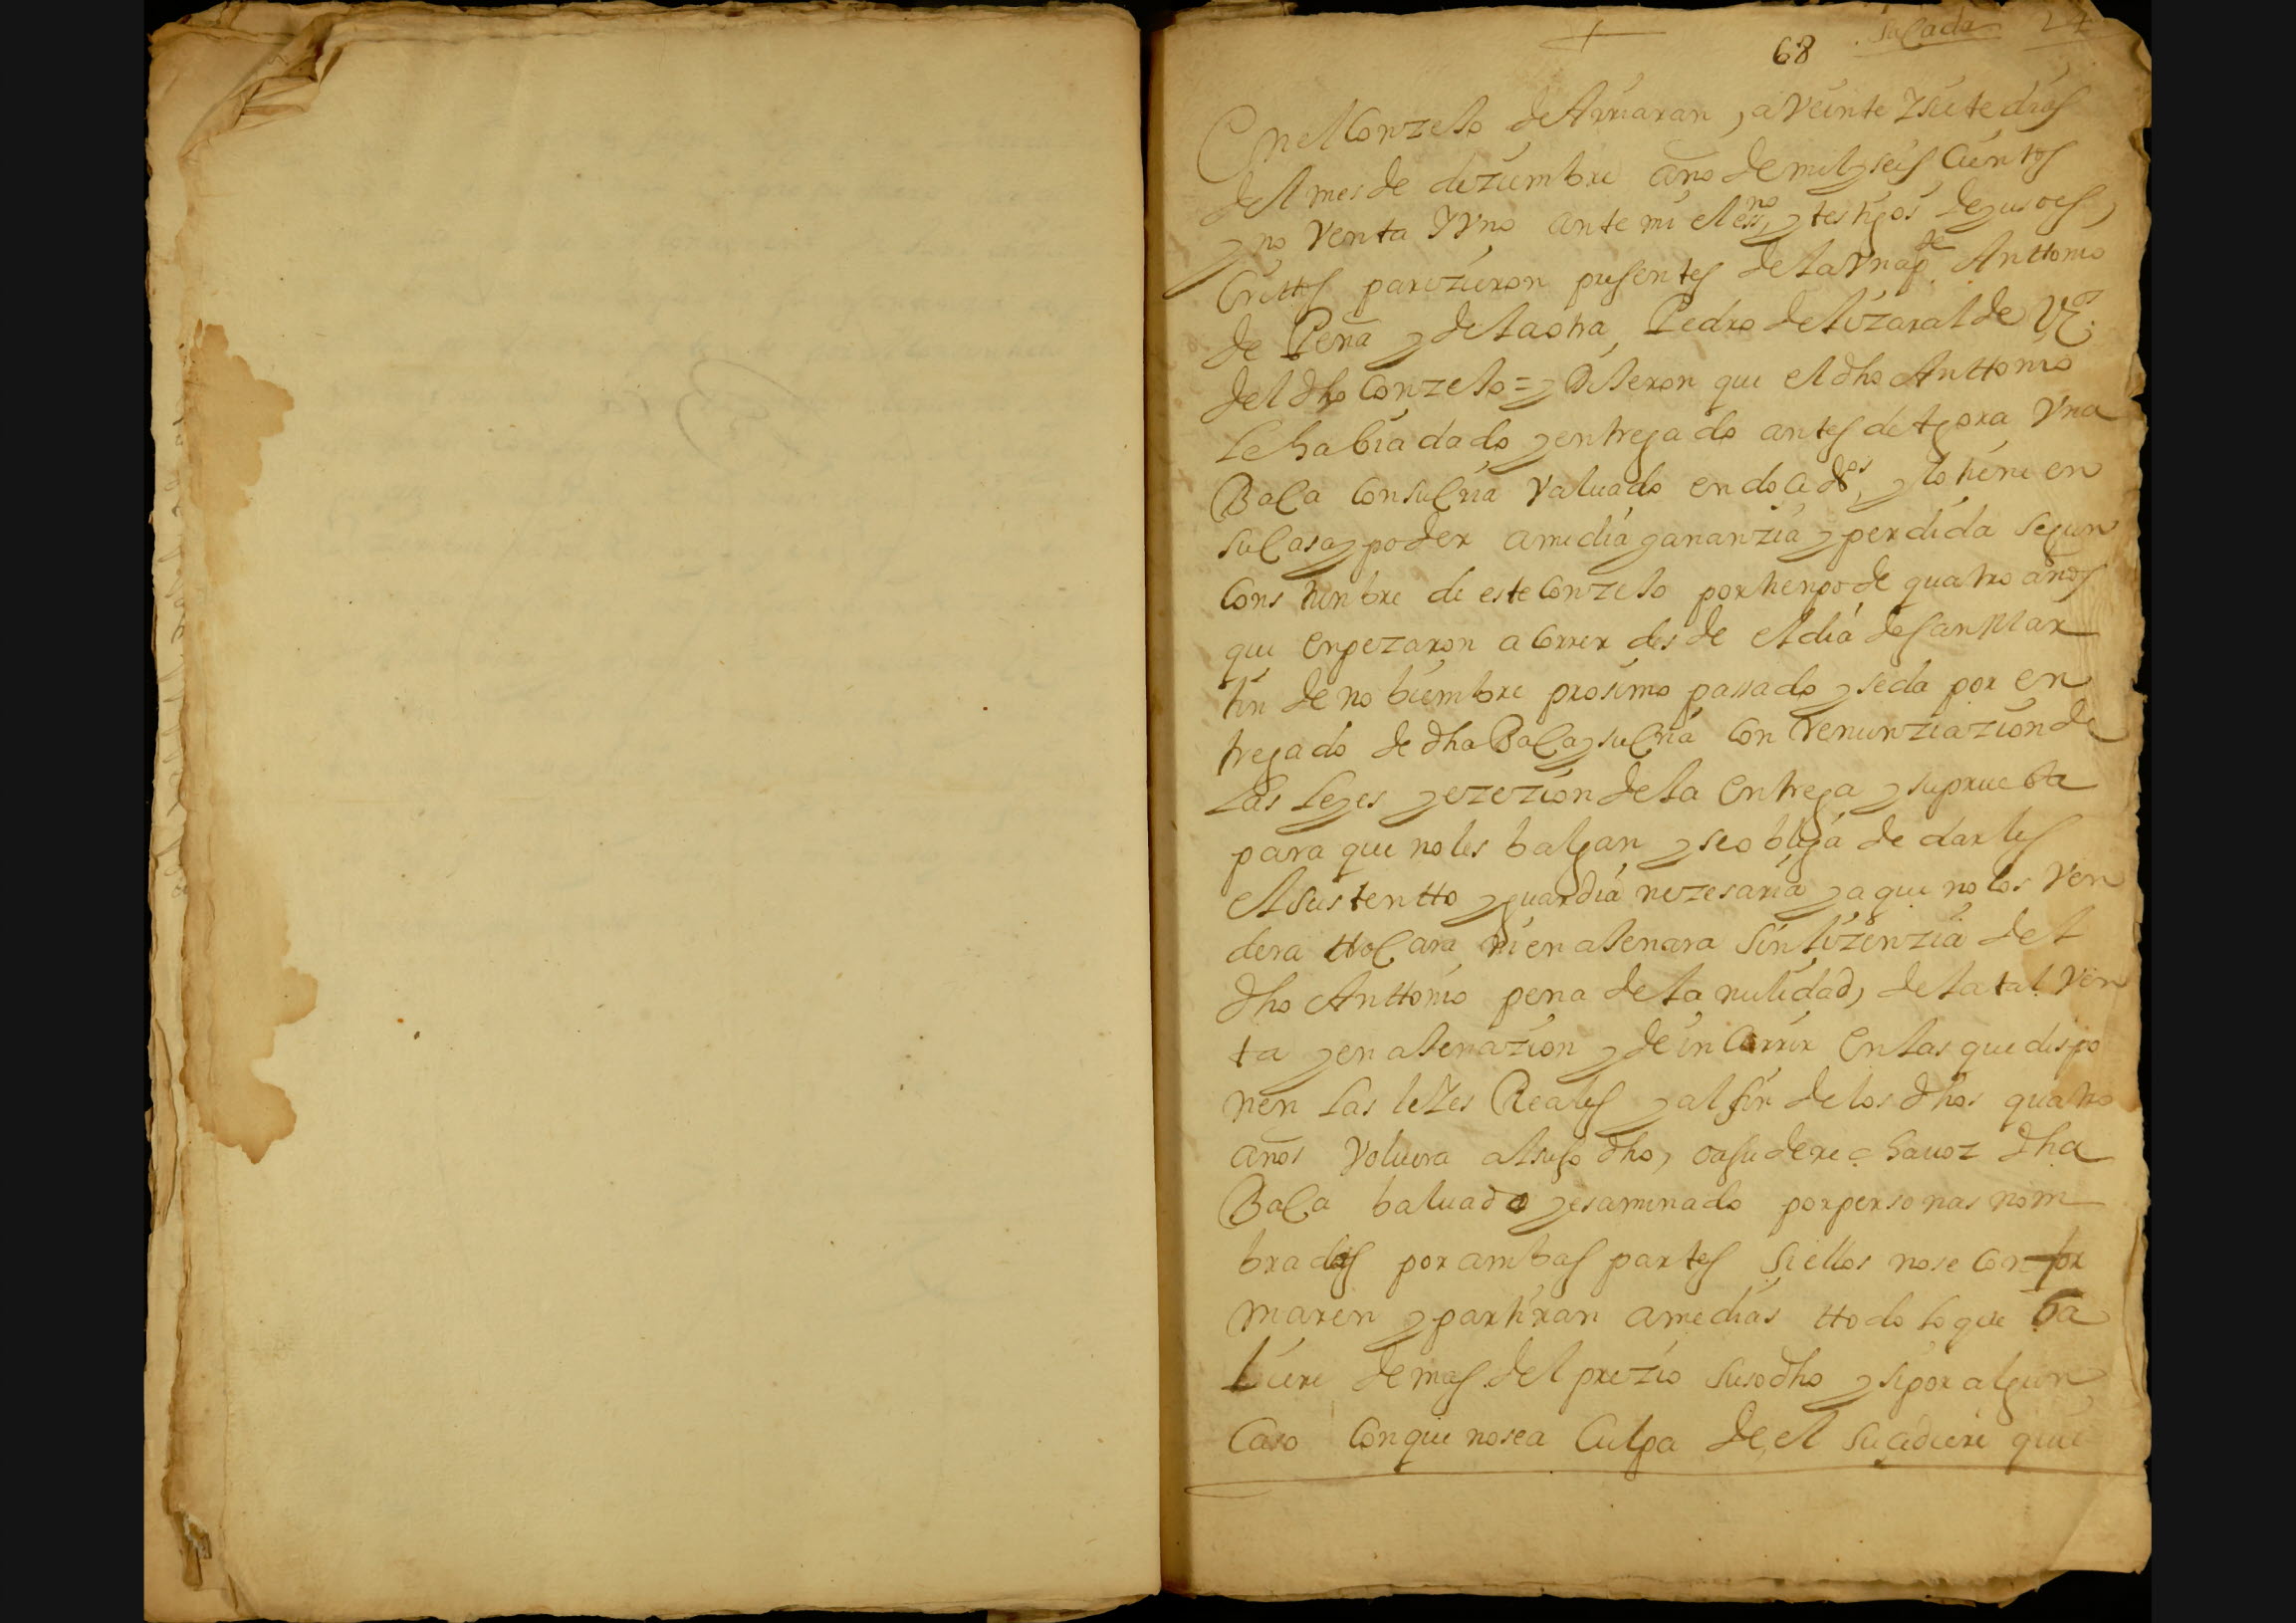 68 sacada 24
En el Conzejo de Arriaran, a veinte Y siete dias
del mes de deziembre año de mil y seis cientos
y no venta Y Vno ante mi el essno, y testigos de yusoes,
crittos parezieron presentes de la vna pte Anttonio
de Peña y de la otra Pedro de lizaralde Vº
del dho Conzejo = y dijeron que el dho Anttonio
le habia dado y entregado antes de Agora Vna
Baca con su Cria valuado en doce dos, y lo tiene en
su Casa y poder a media gananzia y perdida segun
Constunbre de este Conzejo por tienpo de quatro años
que enpezaron a Correr desde el dia de San Mar
tin de nobiembre prosimo passado y se da por en
tregado de dha Baca y su Cria con renunziazion de
las leyes y ezezion de la entrega y su prueba
para que no les balgan y se obliga de darles
el sustentto y guardia nezesaria y a que no los ven
dera ttrocara ni enajenara sin lizenzia del
dho Anttonio pena de la nulidad, de la tal ven
ta y enajenazion y de incurrir en las que dispo
nen las leZes Reales y al fin de los dhos quatro
años voluera al suso dho, o a su derecho hauoz dha
Baca baluado y esaminado por personas nom
brados por ambas partes si ellos no se confor
maren y partiran a medias ttodo lo que ba
liere de mas del prezio susodho y si por algun
caso con que no sea Culpa de el sucediere que